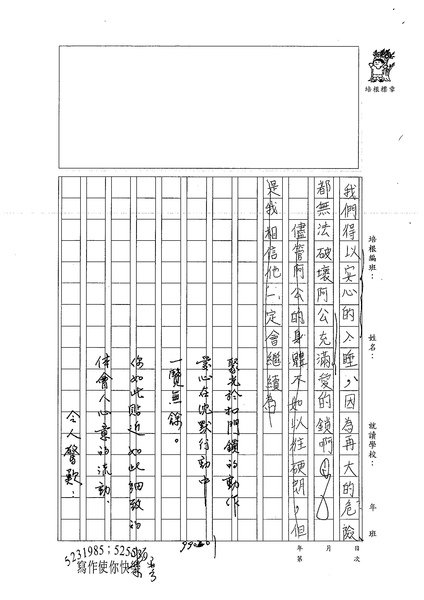 培根標章
培根編班：
姓名：
就讀學校：
年 班
我們得以安心的入睡，因為再大的危險
都無法破壞阿公充滿愛的鎖啊！
儘管阿公的身體不如以往硬朗，但
是我相信他一定會繼續為
聚光於扣門鎖的動作
愛心在沈默行動中
一覽無餘。
你如此貼近如此細致的
体會人心意的流動，
令人驚歎！
年 月 日
第 次
5231985；525
寫作使你快樂